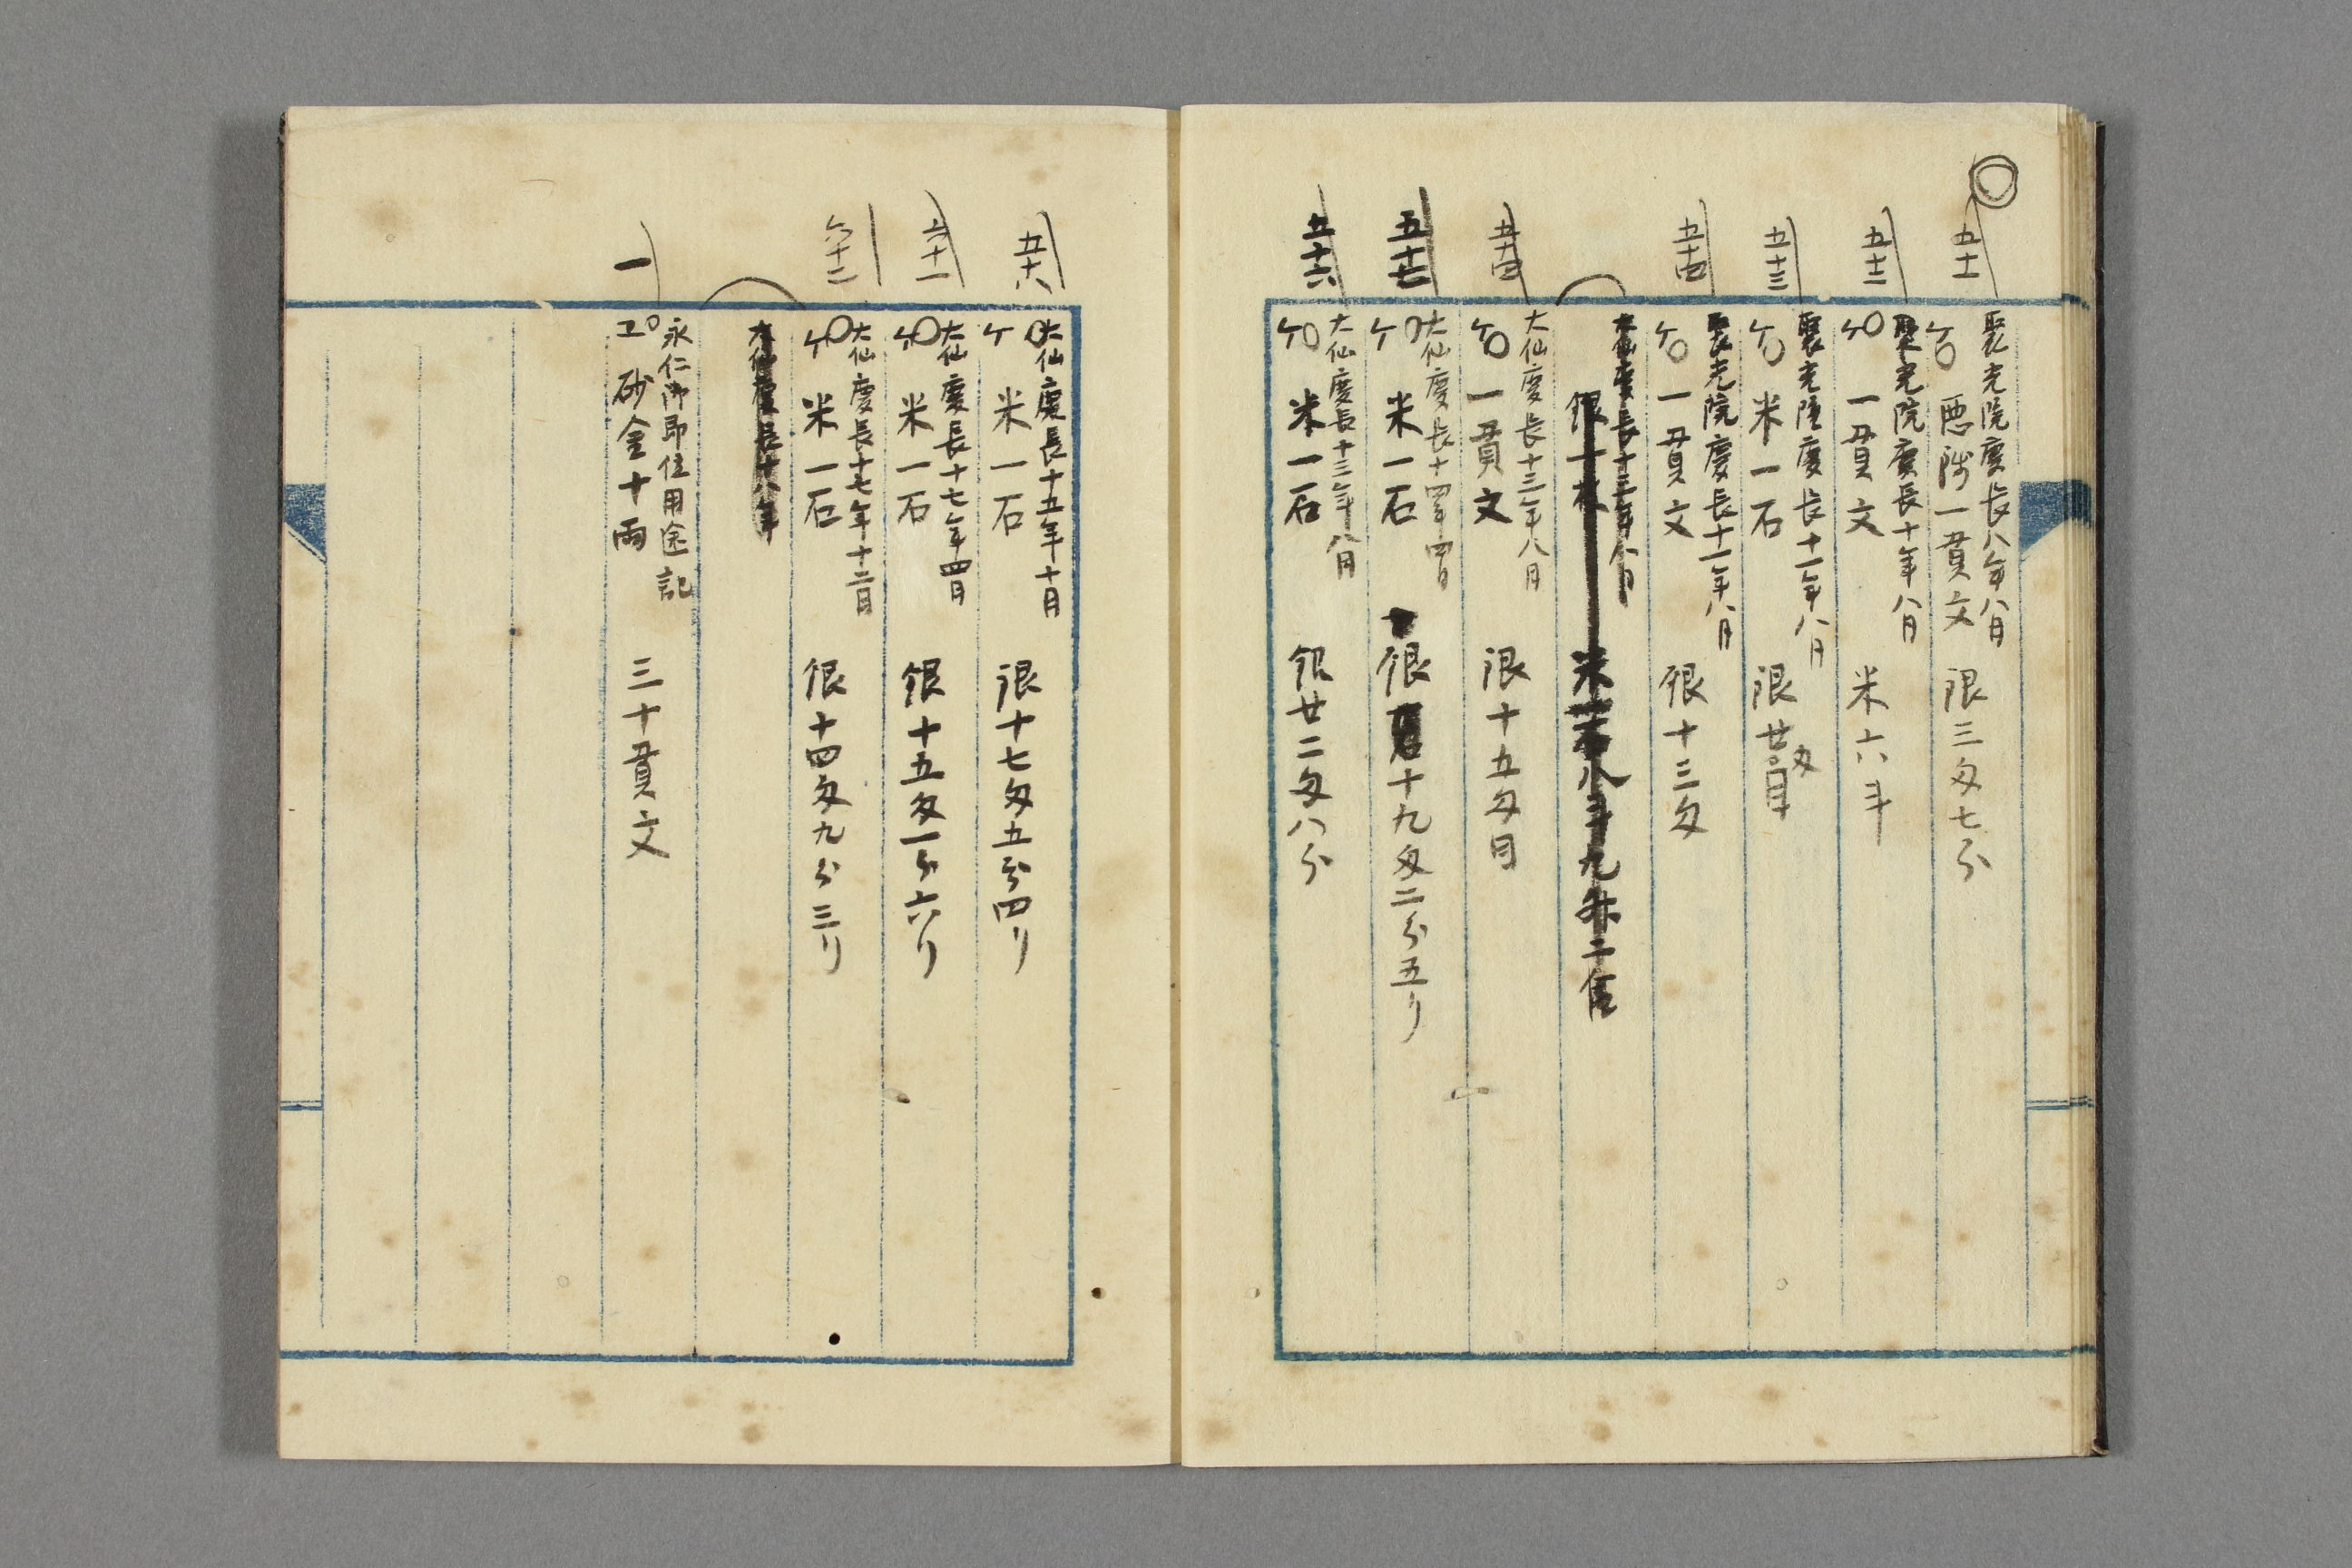 五十一
聚光院慶長八年八月
ケ〇 悪賎一貫文 限三匁七分
五十二
聚光院慶長十年八月
ケ〇 一貫文 米六斗
五十三
聚光院慶長十一年八月
ケ〇 米一石 限廿匁
五十四
聚光院慶長十一年八月
ケ〇 一貫文 銀十三匁
大仙慶長十三年八月
銀一枚 米 八斗九升二合
五十四
大仙慶長十三年八月
ケ〇 一貫文 限十五匁目
五十七
大仙慶長十四年四月
ケ〇 米一石 銀 十九匁二分五リ
五十六
大仙慶長十三年八月
ケ〇 米一石 銀廿二匁八分
五十八
大仙慶長十五年十月
ケ〇 米一石 銀十七匁五分四リ
六十一
大仙慶長十七年四月
ケ〇 米一石 銀十五匁一分六リ
六十二
大仙慶長十七年十二月
ケ〇 米一石 銀十四匁九分三リ
大仙慶長十八年
一
永仁御即位用途記
エ〇 砂金十両 三十貫文